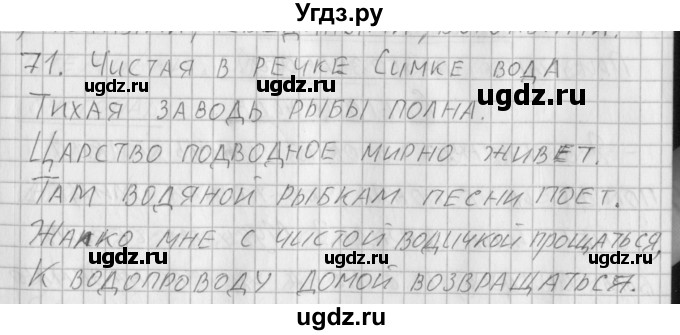 Угдз.ру
71. Чистая в речке Симке вода
Тихая заводь рыбы полна.
Царство подводное мирно живет.
Там водяной рыбкам песни поет.
Жалко мне с чистой водичкой прощаться,
К водопроводу домой возвращаться.
ugdz.ru ugdz.ru ugdz.ru
ugdz.ru ugdz.ru ugdz.ru
ugdz.ru ugdz.ru ugdz.ru
ugdz.ru ugdz.ru ugdz.ru